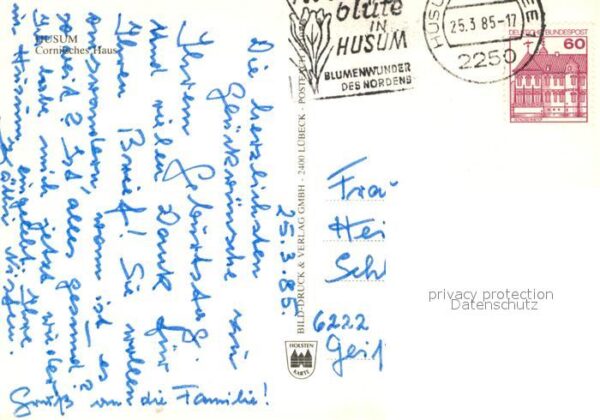 HUSUM
Cornilsches Haus
25.3.85.
Die herzlichsten
Glückwünsche zu
Ihrem Geburtstag.
Und vielen Dank für
Ihren Brief! Sie wollen
wann ich es
alles gesund?
habe mich jetzt wieder
in Husum eingelebt. Ihre
Gruß an die Familie!
blüte
IN
HUSUM
BLUMENWUNDER
DES NORDENS
HUSUM
25.3.85-17
2250
DEUTSCHE BUNDESPOST
60
BILD-DRUCK & VERLAG GMBH - 2400 LÜBECK - POSTFACH
HOLSTEN
KARTE
Frau
Hei
Sch
6222
Gei
privacy protection
Datenschutz